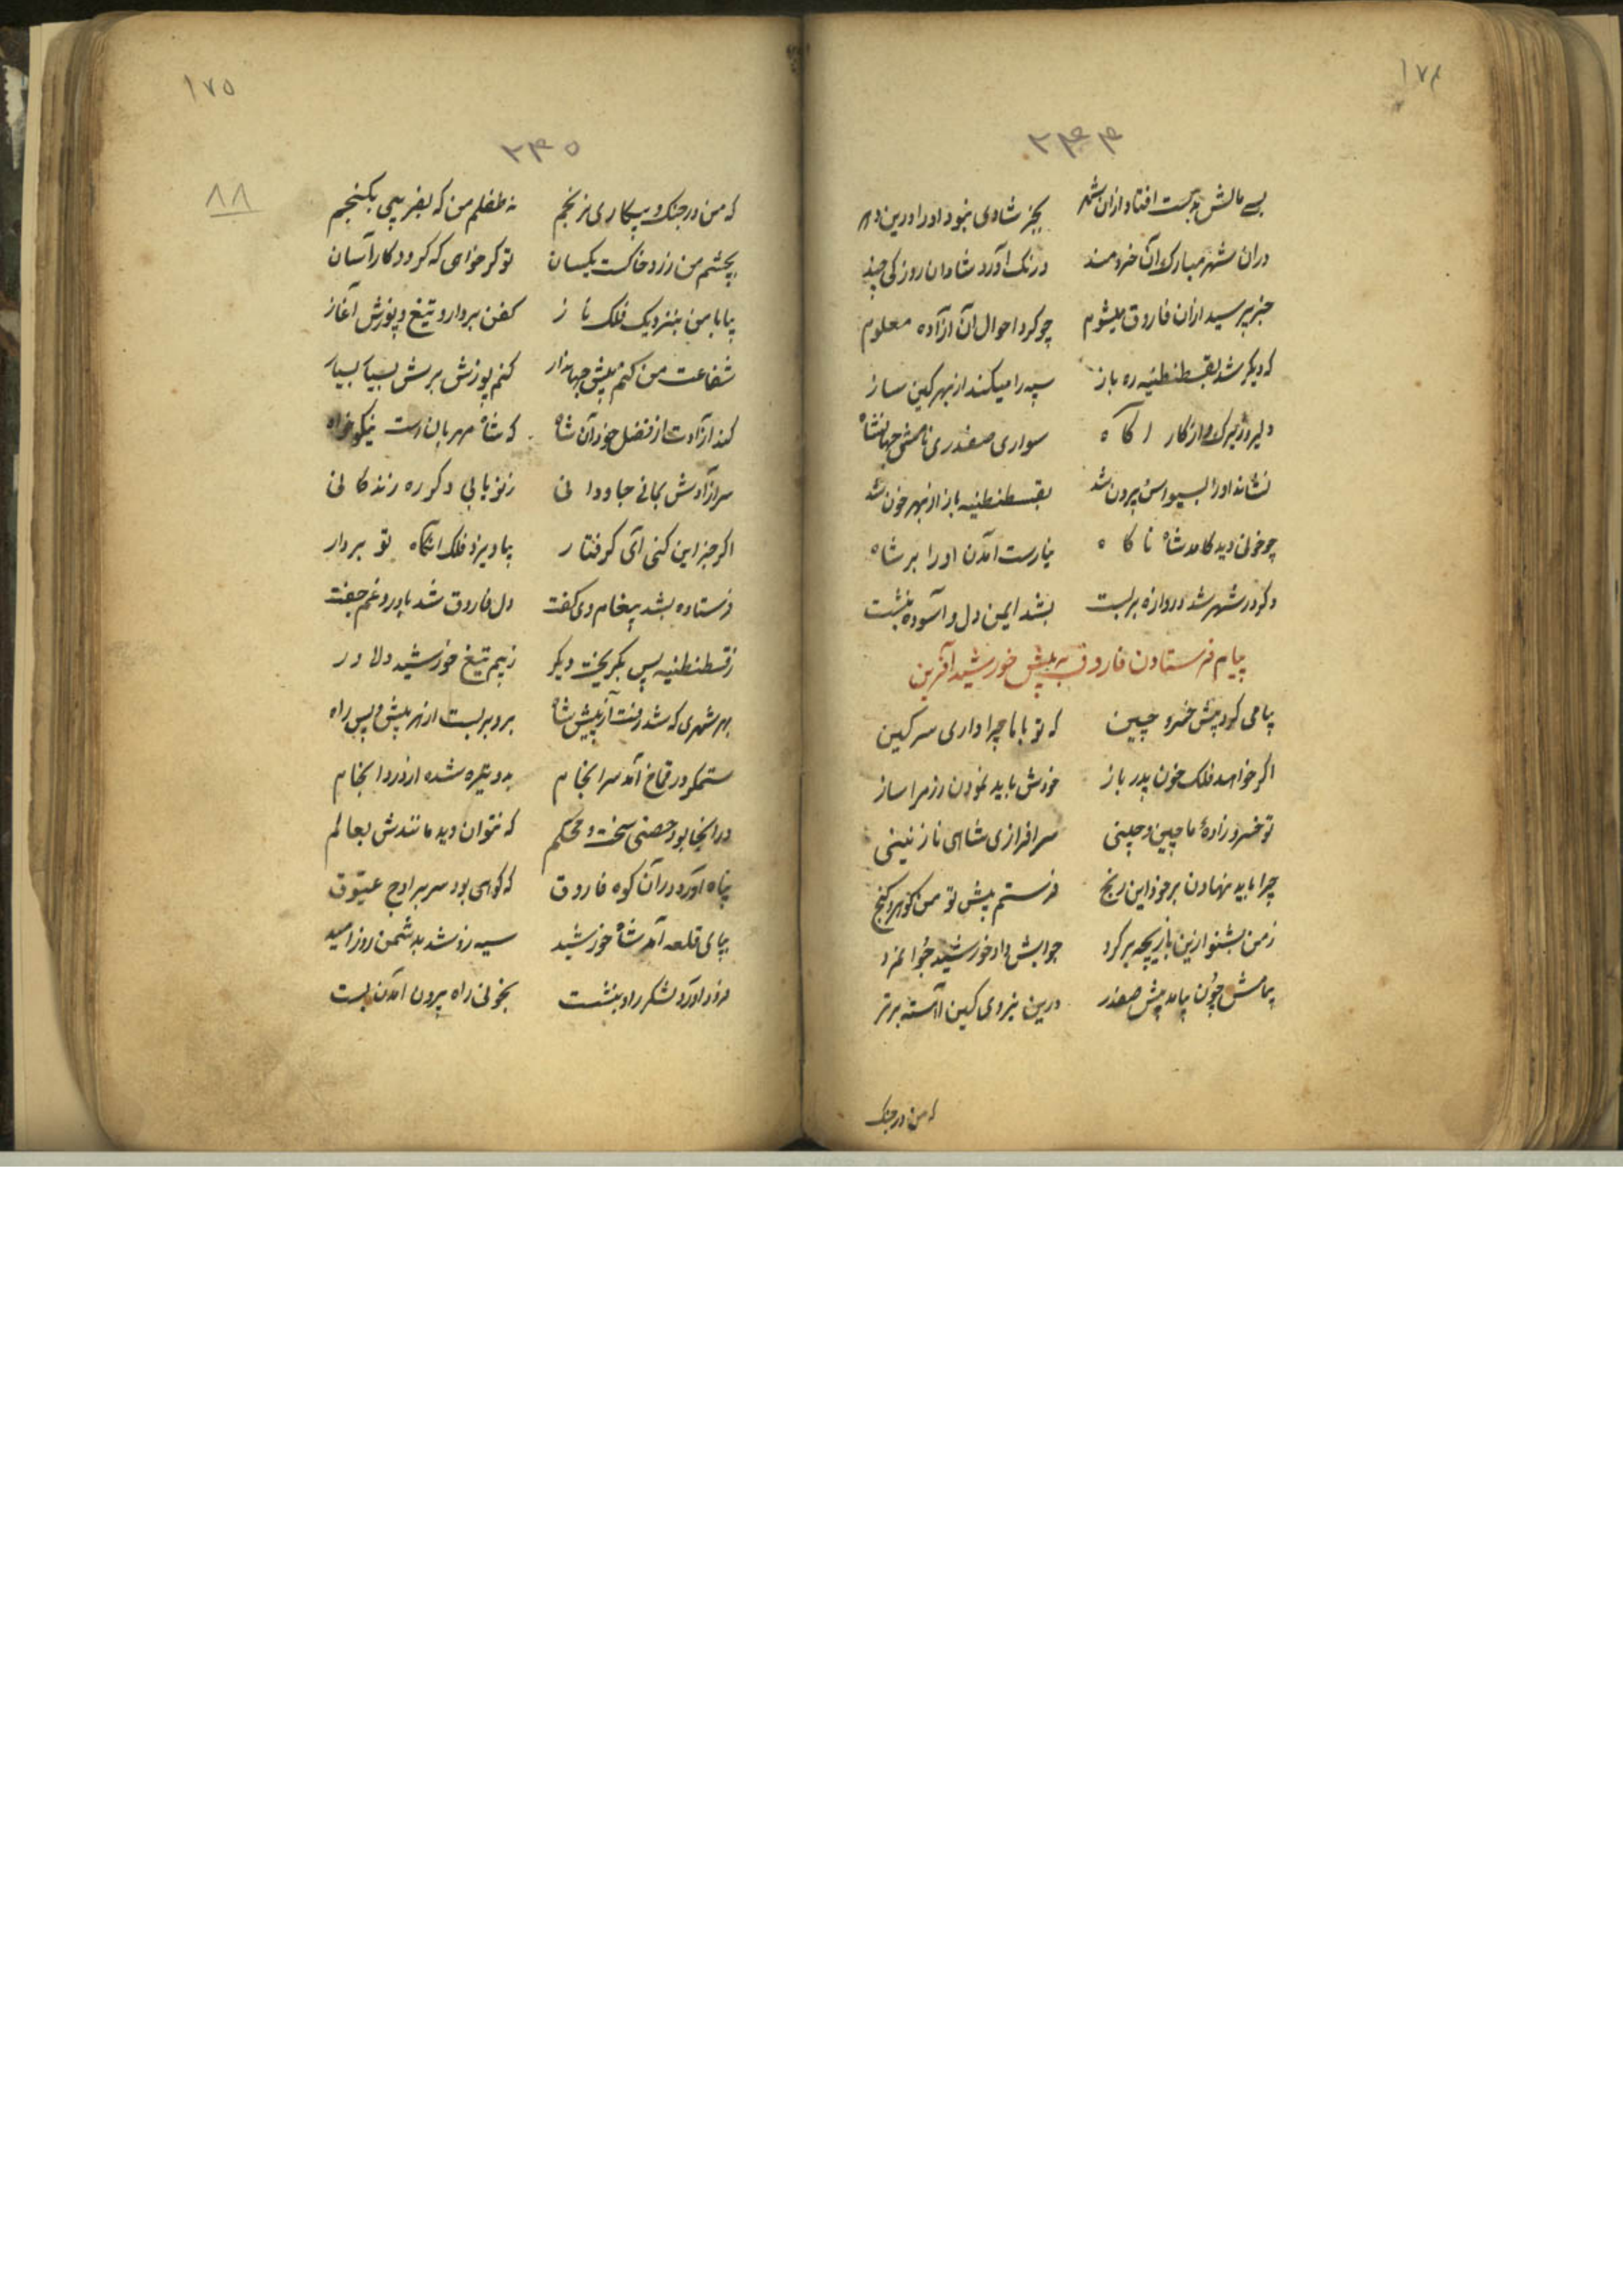 ۱۷۴
۲۴۴
بسے مالش بدست افتاد ازان شهر بجز شادی نبود او را درین دهر
دران شهر مبارک آن خردمند درنک آورد شادان روزکی چند
خبر پرسید ازان فاروق میشوم چو کرد احوال آن آزاده معلوم
که دیکر شد بقسطنطنیه ره باز سپه را میکند از بهر کین ساز
دلیر و زیرک و از کار اکاه سواری صفدری نامش جهانشاه
نشاند او را بسیواس بیرون شد بقسطنطنیه باز از بهر خون شد
چو خونی دید کامد شاه ناکاه نیارست امدن او را بر شاه
دکر در شهر شد دروازه بربست بشد ایمن دل و آسوده بنشست
پیام فرستادن فاروق به پیش خورشید آفرین
پیامی کرد پیش خسرو چین که تو باما چرا داری سر کین
اکر خواهد فلک خون پدر باز خودش باید نمودن رزم را ساز
تو خسرو زادهٔ ماچین و چینی سرافرازی شاهی نازنینی
چرا باید نهادن بر خود این رنج فرستم پیش تو من کوهر و کنج
ز من بشنو ازین بازیچه برکرد جوابش داد خورشید جوانمرد
پیامش چون بیامد پیش صفدر درین نیروی کین آهسته برتر
که من در جنک
۱۷۵
۲۴۵
۸۸
که من در جنک و پیکاری نرنجم نه طفلم من که بفریبی بکنجم
بچشم من زر و خاکست یکسان تو کر خواهی که کردد کار آسان
بیا با من بنزدیک فلک ناز کفن بردار و تیغ و پوزش آغاز
شفاعت من کنم پیش جهاندار کنم پوزش برش بسیار بسیار
کند آزادت از فضل خود آن شاه که شاه مهربان است نیکو خواه
سر آزادش بمانی جاودانی ز نو یابی دکر ره زندکانی
اکر جز این کنی آئی کرفتار بیاویزد فلک آنکاه تو بردار
فرستاده بشد پیغام وی کفت دل فاروق شد با درد و غم جفت
ز قسطنطنیه پس بکریخت دیکر ز بیم تیغ خورشید دلاور
بهر شهری که شد رفت از پیش شاه برو بربست از هر پیش و پس راه
ستمکر در قاخ آمد سرانجام بدو تیره شده از درد انجام
در انجا بود حصنی سخت و محکم که نتوان دید مانندش بعالم
پناه آورد در آن کوه فاروق که کوهی بود سر بر اوج عیوق
بپای قلعه آمد شاه خورشید سیه رو شد بدشمن روز امید
فرود آورد لشکر را و بنشست بخونی راه بیرون آمدن بست